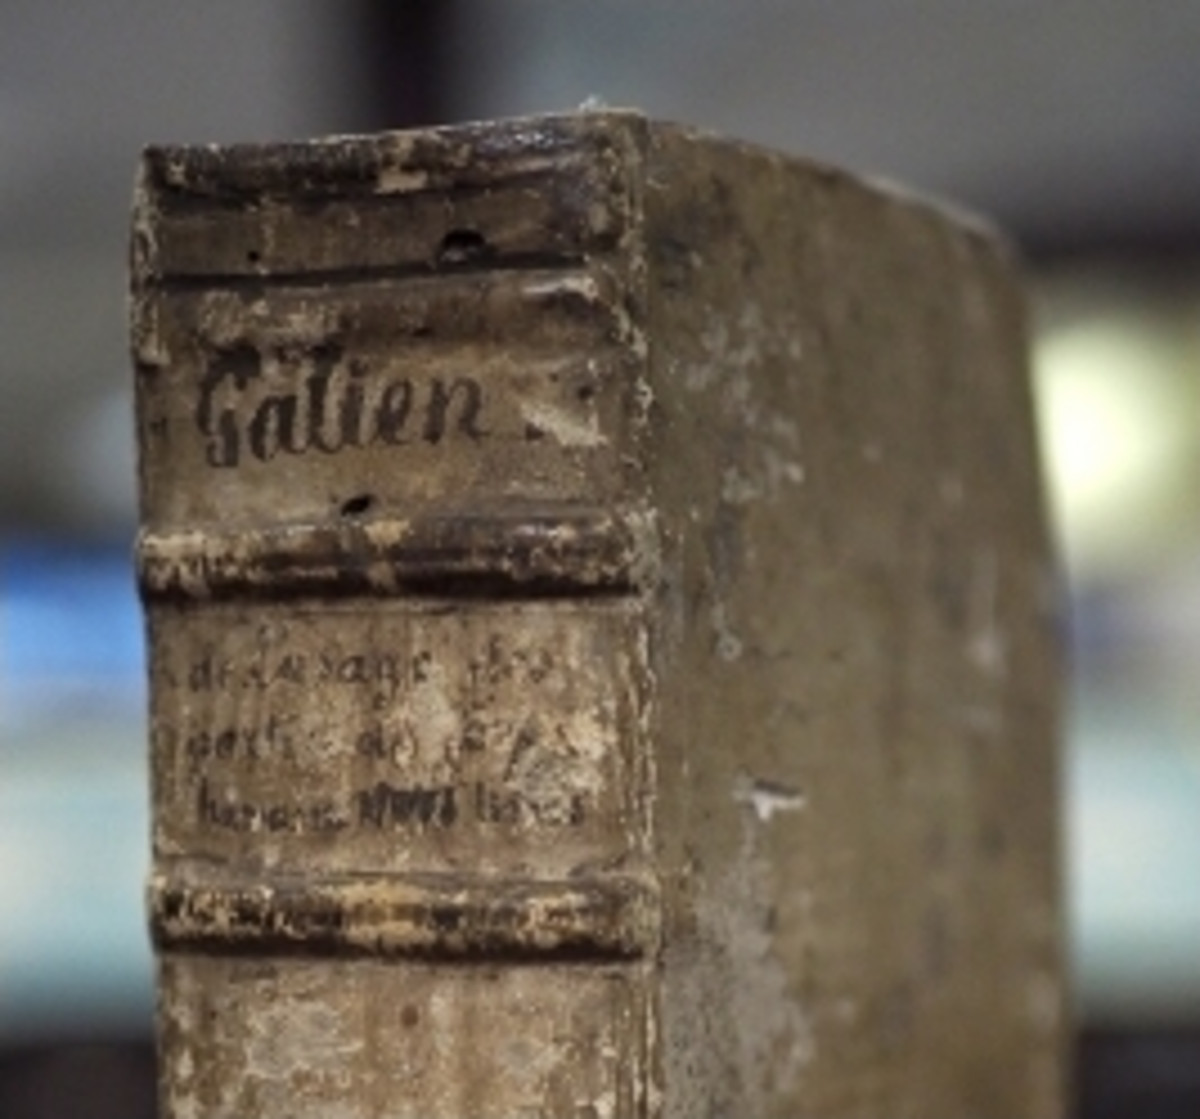 Galien
de l'usage des
part du corps
humain livres